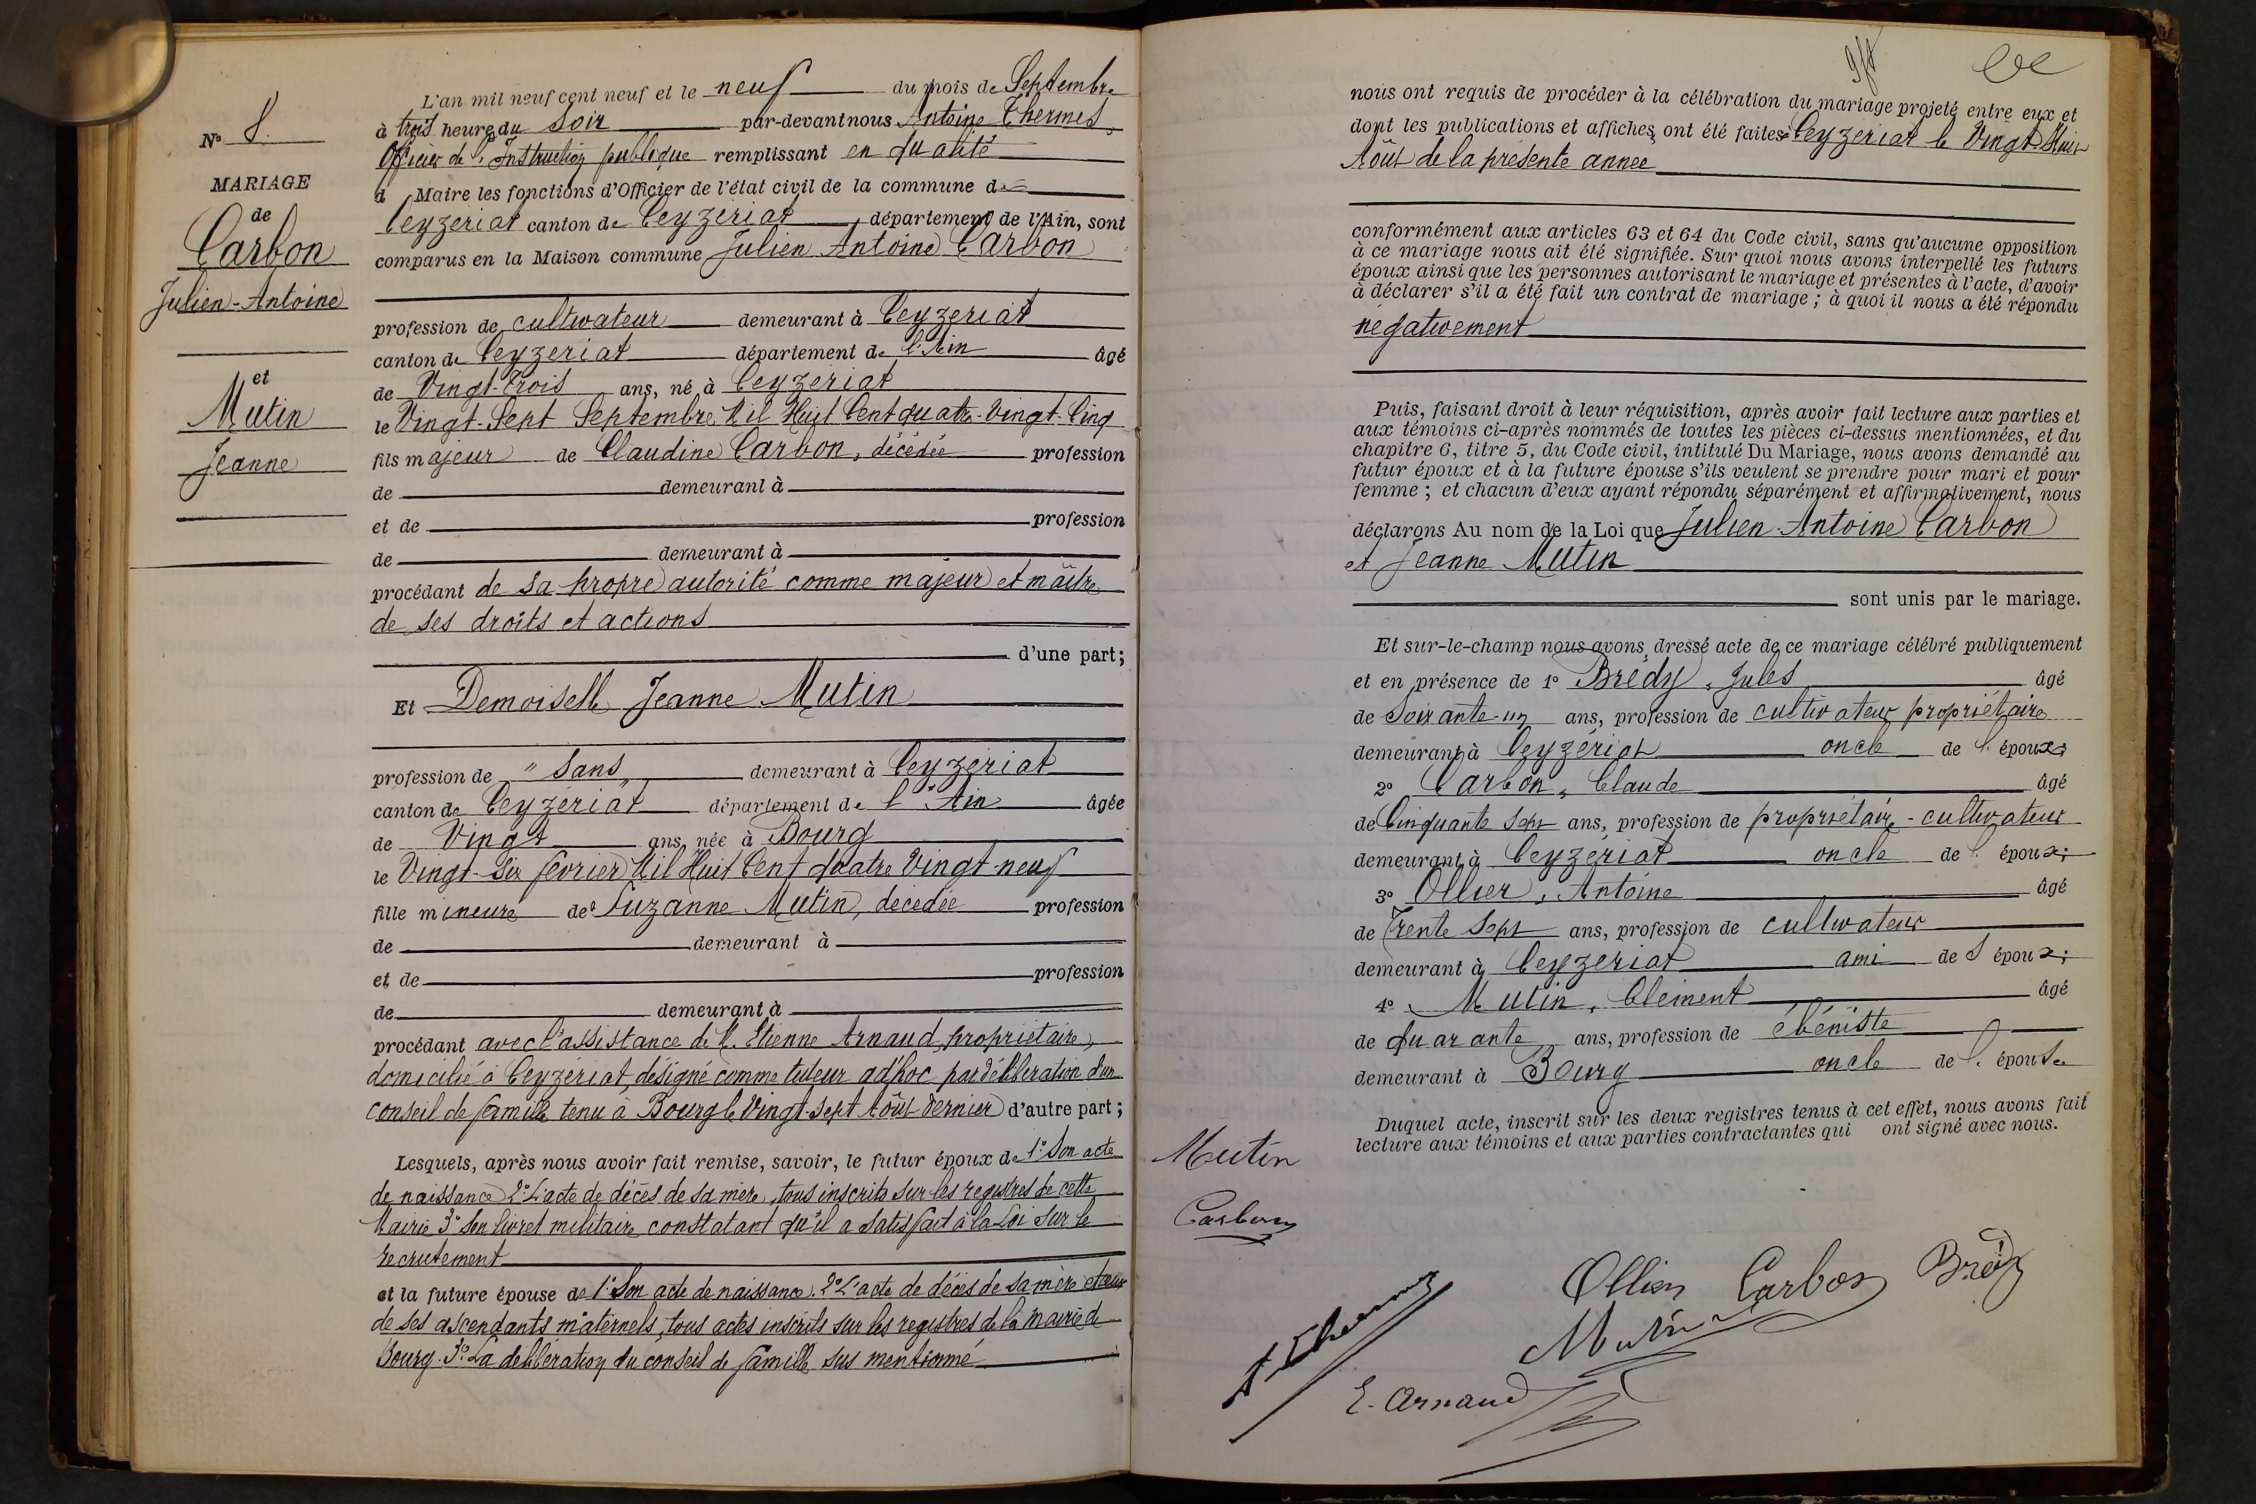 N° 8.
MARIAGE
de
Carbon
Julien-Antoine
et
Mutin
Jeanne
L'an mil neuf cent neuf et le neuf du mois de Septembre
à trois heure du Soir par-devant nous Antoine Thermes,
Officier de l'Instruction publique remplissant en qualité
d Maire les fonctions d'Officier de l'état civil de la commune de
Ceyzeriat canton de Ceyzériat département de l'Ain, sont
comparus en la Maison commune Julien Antoine Carbon
profession de cultivateur demeurant à Ceyzeriat
canton de Ceyzeriat département de l'Ain âgé
de Vingt-trois ans, né à Ceyzeriat
le Vingt-Sept Septembre Mil Huit Cent quatre-Vingt-Cinq
fils majeur de Claudine Carbon, décédée profession
de demeurant à
et de profession
de demeurant à
procédant de sa propre autorité comme majeur et maître
de ses droits et actions
d'une part;
Et Demoiselle Jeanne Mutin
profession de " Sans " demeurant à Ceyzériat
canton de Ceyzériat département de l'Ain âgée
de Vingt ans, née à Bourg
le Vingt-Six février Mil Huit Cent quatre Vingt-neuf
fille mineure de Suzanne Mutin, décédée profession
de demeurant à
et de profession
de demeurant à
procédant avec l'assistance de M. Etienne Arnaud, propriétaire,
domicilié à Ceyzériat, désigné comme tuteur ad'hoc par délibération d'un
conseil de famille tenu à Bourg le Vingt-sept Août dernier d'autre part;
Lesquels, après nous avoir fait remise, savoir, le futur époux de 1° Son acte
de naissance 2° L'acte de décès de sa mère, tous inscrits sur les registres de cette
Mairie 3° Son livret militaire constatant qu'il a satisfait à la Loi sur le
recrutement
et la future épouse de 1° Son acte de naissance. 2° L'acte de décès de sa mère et ceux
de ses ascendants maternels, tous actes inscrits sur les registres de la mairie de
Bourg. 3° La délibération du conseil de famille sus mentionné
nous ont requis de procéder à la célébration du mariage projeté entre eux et
dont les publications et affiches ont été faites à Ceyzeriat le Vingt-Huit
Août de la présente annee
conformément aux articles 63 et 64 du Code civil, sans qu'aucune opposition
à ce mariage nous ait été signifiée. Sur quoi nous avons interpellé les futurs
époux ainsi que les personnes autorisant le mariage et présentes à l'acte, d'avoir
à déclarer s'il a été fait un contrat de mariage; à quoi il nous a été répondu
négativement
Puis, faisant droit à leur réquisition, après avoir fait lecture aux parties et
aux témoins ci-après nommés de toutes les pièces ci-dessus mentionnées, et du
chapitre 6, titre 5, du Code civil, intitulé Du Mariage, nous avons demandé au
futur époux et à la future épouse s'ils veulent se prendre pour mari et pour
femme; et chacun d'eux ayant répondu séparément et affirmativement, nous
déclarons Au nom de la Loi que Julien-Antoine Carbon
et Jeanne Mutin
sont unis par le mariage.
Et sur-le-champ nous avons dressé acte de ce mariage célébré publiquement
et en présence de 1° Brédy, Jules âgé
de Soixante-un ans, profession de cultivateur propriétaire
demeurant à Ceyzériat oncle de l'époux;
2° Carbon, Claude âgé
de Cinquante Sept ans, profession de propriétaire-cultivateur
demeurant à Ceyzériat oncle de l'époux;
3° Ollier, Antoine âgé
de Trente Sept ans, profession de cultivateur
demeurant à Ceyzeriat ami de l'époux;
4° Mutin, Clément âgé
de quarante ans, profession de ébéniste
demeurant à Bourg oncle de l'épouse
Duquel acte, inscrit sur les deux registres tenus à cet effet, nous avons fait
lecture aux témoins et aux parties contractantes qui ont signé avec nous.
Mutin
Carbon
Ollier Carbon Brédy
A Thermes
Mutin
E. Arnaud